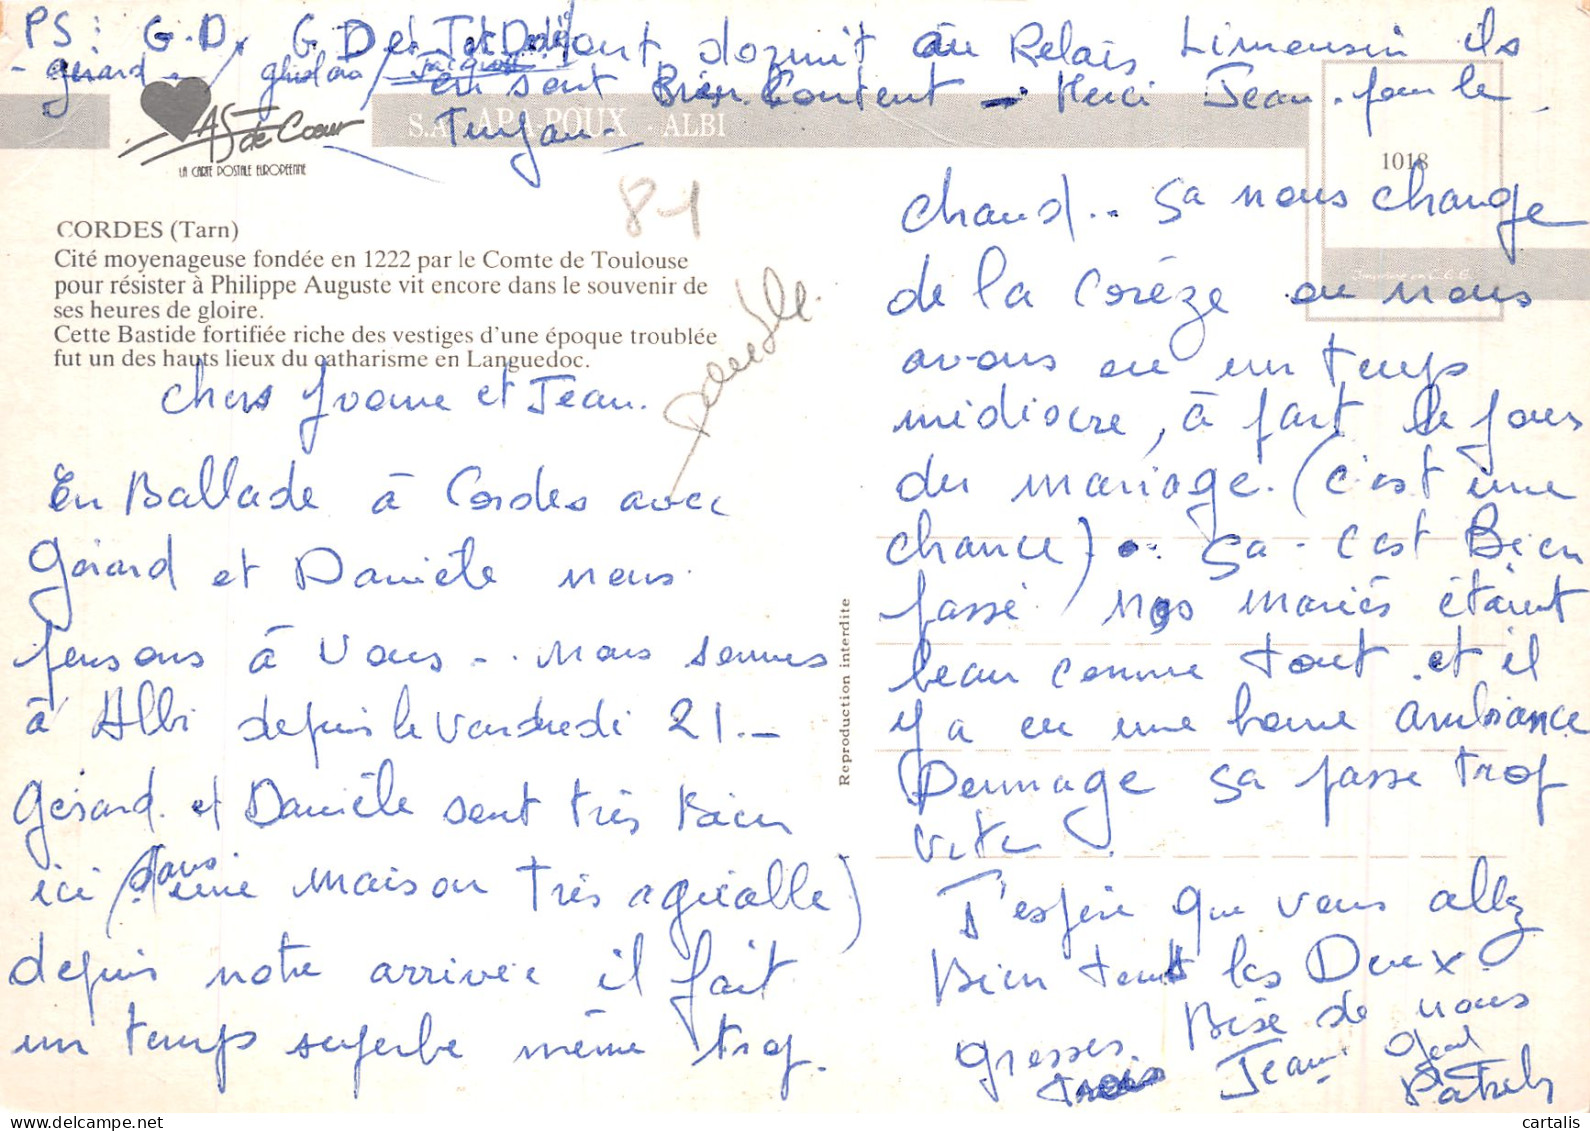 PS: G.D. G D et J et D ont dormit au Relais Limousin ils
- gérard - / ghislain / Jacques en sont Bien Content - Merci Jean pour le
Tuyau -
AS de Cœur
LA CARTE POSTALE EUROPÉENNE
S.A. APA-POUX - ALBI
1018
Imprimé en C.E.E.
81
CORDES (Tarn)
Cité moyenageuse fondée en 1222 par le Comte de Toulouse
pour résister à Philippe Auguste vit encore dans le souvenir de
ses heures de gloire.
Cette Bastide fortifiée riche des vestiges d'une époque troublée
fut un des hauts lieux du catharisme en Languedoc.
Chers Yvonne et Jean.
En Ballade à Cordes avec
Gérard et Danièle nous
pensons à Vous - . nous sommes
à Albi depuis le Vendredi 21. -
Gérard et Danièle sont très bien
ici (dans une maison très agréable)
depuis notre arrivée il fait
un temps superbe même trop
Reproduction interdite
chaud.. sa nous change
de la Corèze ou nous
avons eu un temps
médiocre, à part le jour
du mariage. (c'est une
chance) . sa - c'est Bien
passé / nos mariés étaient
beau comme tout et il
y a eu une bonne ambiance
Dommage sa passe trop
vite
J'espère que vous allez
Bien tous les Deux.
Grosses Bise de nous
trois Jean
Patrick
cartalis